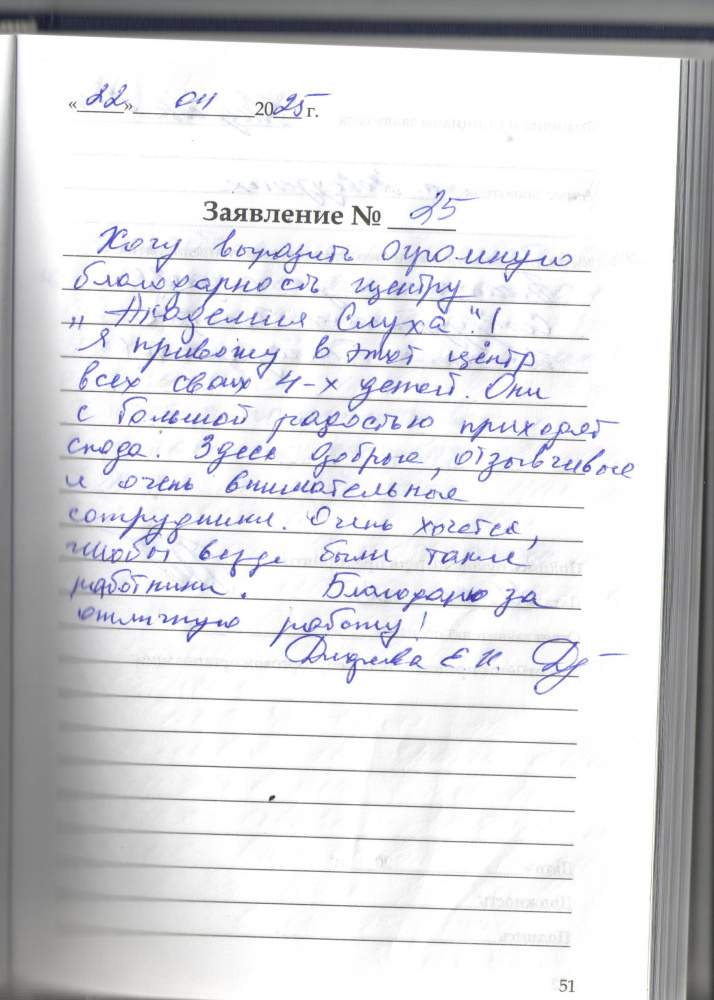 «22» 04 2025 г.
Заявление № 25
Хочу выразить огромную
благодарность центру
„Академия Слуха"!
Я привожу в этот центр
всех своих 4-х детей. Они
с большой радостью приходят
сюда. Здесь добрые, отзывчивые
и очень внимательные
сотрудники. Очень хочется,
чтобы везде были такие
работники. Благодарю за
отличную работу!
Е. И.
51